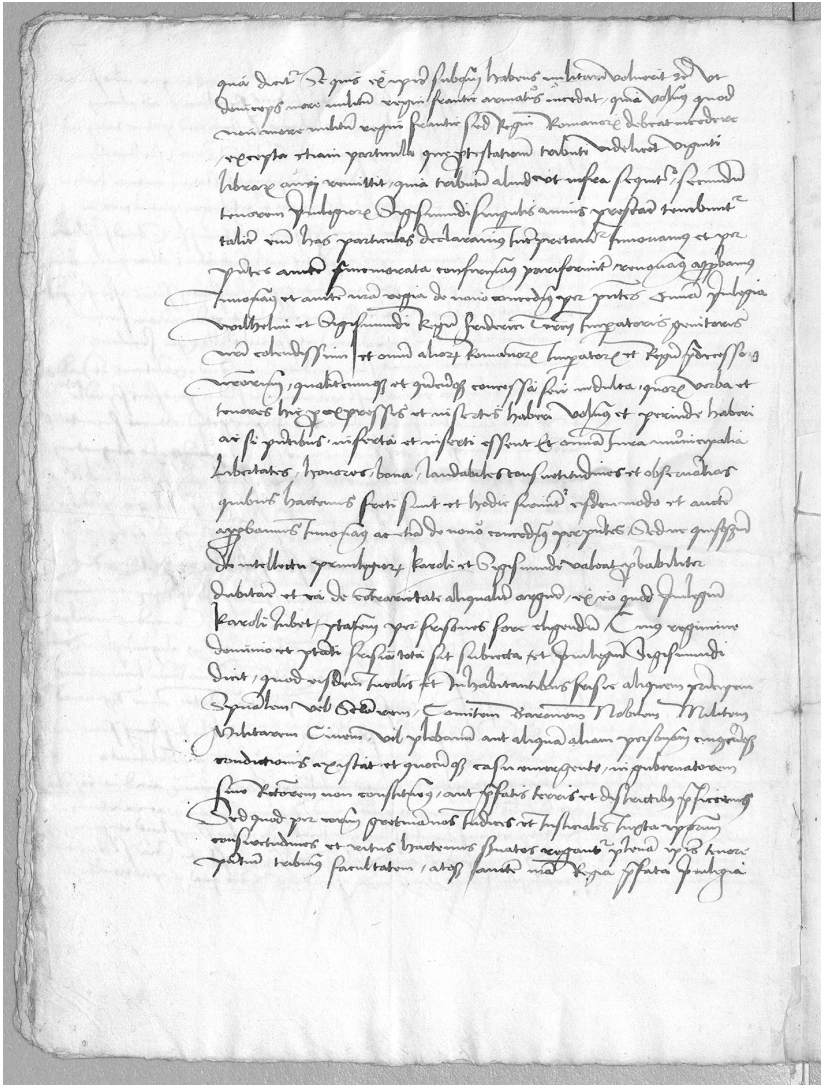 qua dicit~ Si quis ex ipsis subqua habens militare voluerit ut
deinceps more militum regni francie armatus incedat, quia volum9 quod
non more militum regni francie sed Regni Romanorum debeat incedere
excepta etiam particula que tributi videlicet viginti
librarum remittit, quia tributum aliud ut infra sequit~, secundum
tenorem privilegiorum Sigismundi singulis annis prestare tenebunt~
taliter eni has particulas declaramus interpretamur Innovamus et per
pntes aucte prememorata confirmam9 pariformit~ renovam9 approbamus
Innovam9 et aucte nra regia de novo conced9 per pntes Omnia privilegia
Wilhelmi et Sigismundi Regum friderici Tercij Imperatoris genitoris
nri colendissimi et omnium aliorum Romanorum Imperatorum et Regum predecessorum
nrorum, qualitercumque et quecumque concessa seu indulta, quorum verba et
tenores hic pro expressis et insertis haberi volum9 et perinde haberi
ac si pntibus inserta et inserti essent Et omnia Iura municipalia
libertates, honores, bona, laudabiles consuetudines et observatias
quibus hactenus freti sunt et hodie fruunt~ eisdem modo et aucte
approbamus Innovam9 ac etia de novo conced9 per pntes, Sed ne quisquam
de intellectu privilegiorum karoli et Sigismundi valeat probabiliter
dubitare et ea de contrarietate aliqualiter arguere, ex eo quod privilegium
karoli iubet, ptatem per frisones fore eligendum Cuius regimine
dominio et ptati frisia tota sit subiecta, et privilegium Sigismundi
dicit, quod eisdem Incolis et Inhabitantibus frisie aliquem principem
Spualem vel Secularem, Comitem Baronem Nobilem Militem
Militarem Civem, vel plebanum aut aliqua aliam personam cuiuscumque
condictionis existat et quocumque casu emergente, in gubernatorem
sive Rectorem non constituem9, aut prefatis terris et districtibus preficiem9
Sed quod per eorum greetmannos Iudices et Iusticiales Iuxta ipsorum
consuetudines et ritus hactenus servatos regant~ plenam ipsis tenore
pntium tribuim9 facultatem, atque aucte nra Regia prefata privilegia